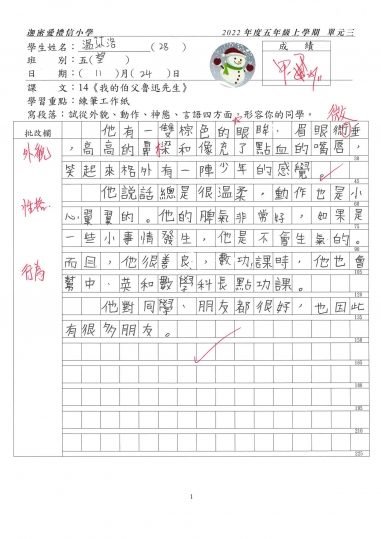 迦密愛禮信小學 2022年度五年級上學期 單元三
學生姓名： 溫 浩 (28) 成績
班 別：五(望)
日 期：(11)月(24)日
課 文：14《我的伯父魯迅先生》
學習重點：練筆工作紙
寫段落：試從外貌、動作、神態、言語四方面，形容你的同學。
批改欄
微
他有一雙棕色的眼眸，眉眼微垂
外貌
，高高的鼻樑和像充了點血的嘴唇，
笑起來格外有一陣少年的感覺。
他說話總是很溫柔，動作也是小
性格
心翼翼的。他的脾氣非常好，如果是
一些小事情發生，他是不會生氣的。
行為
而且，他很善良，數功課時，他也會
幫中、英和數學科長點功課。
他對同學、朋友都很好，也因此
有很多朋友。
15
30
45
60
75
90
105
120
135
150
165
180
195
210
225
1